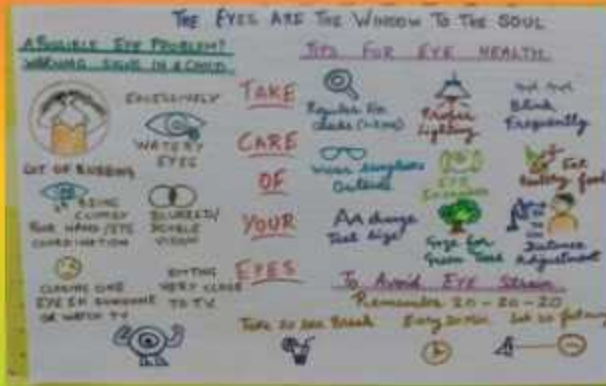 THE EYES ARE THE WINDOW TO THE SOUL
A POSSIBLE EYE PROBLEM?
WARNING SIGNS IN A CHILD
TIPS FOR EYE HEALTH
LOT OF RUBBING
EXCESSIVELY
WATERY
EYES
BEING
CLUMSY
POOR HAND/EYE
COORDINATION
BLURRED/
DOUBLE
VISION
CLOSING ONE
EYE IN SUNSHINE
OR WATCH TV
SITTING
VERY CLOSE
TO TV
TAKE
CARE
OF
YOUR
EYES
Regular Eye
checks
Proper
Lighting
Blink
Frequently
Wear sunglasses
Outdoors
EYE
Exercises
Eat
Healthy food
AA change
Text Size
Gaze for
Green
Distance
Adjustment
To Avoid Eye Strain
Remember 20-20-20
Take 20 sec Break
Every 20 Min
20 feet away